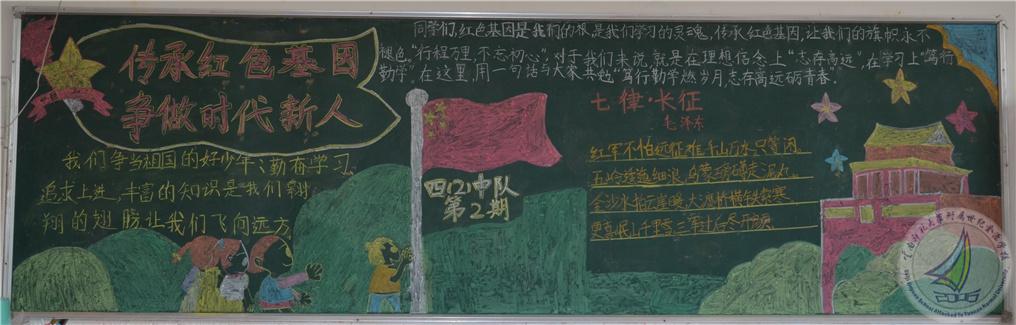 传承红色基因
争做时代新人
我们争当祖国的好少年、勤奋学习、
追求上进,丰富的知识是我们翱
翔的翅膀让我们飞向远方。
同学们,红色基因是我们的根,是我们学习的灵魂,传承红色基因,让我们的旗帜永不
褪色。“行程万里,不忘初心”,对于我们来说,就是在理想信念上“志存高远”,在学习上“笃行
勤学”,在这里,用一句话与大家共勉“笃行勤学燃岁月,志存高远砺青春。”
四(2)中队
第2期
七律·长征
毛泽东
红军不怕远征难,千山万水只等闲。
五岭逶迤腾细浪,乌蒙磅礴走泥丸。
金沙水拍云崖暖,大渡桥横铁索寒。
更喜岷山千里雪,三军过后尽开颜。